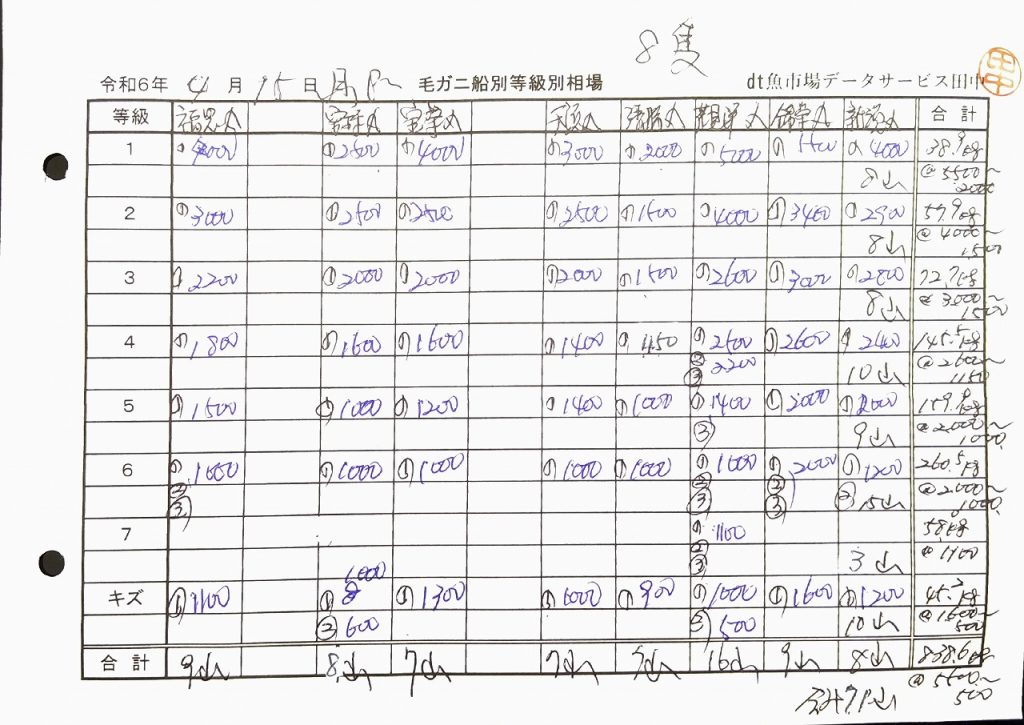 8隻
令和6年 4月 15日 月 毛ガニ船別等級別相場 dt魚市場データサービス田中
田中
等級 合計
1 ①4000 ①2500 ①4000 ①3000 ①2000 ①5000 ① ①4000 38.9kg
8山 @5500〜2000
2 ①3000 ①2500 ①2500 ①2500 ①1500 ①4000 ①3400 ①2900 57.9kg
8山 @4000〜1500
3 ①2200 ①2000 ①2000 ①2000 ①1500 ①2600 ①3000 ①2800 72.7kg
8山 @3000〜1500
4 ①1800 ①1600 ①1600 ①1400 ①1150 ①2500 ①2600 ①2400 145.5kg
②③2200 10山 @2600〜1150
5 ①1500 ①1000 ①1200 ①1400 ①1000 ①1400 ①2000 ①2000 159.9kg
③ 9山 @2000〜1000
6 ①1000 ①1000 ①1000 ①1000 ①1000 ①1000 ①2000 ①1200 260.5kg
②③ ②③ ②③ ② 15山 @2000〜1000
7 ①1100 58kg
②③ 3山 @1100
キズ ①1100 ①1000 ①1300 ①1000 ①900 ①1000 ①1600 ①1200 45.2kg
②600 ③500 10山 @1600〜500
合計 9山 8山 7山 7山 7山 16山 9山 8山 838.6kg
合計71山 @5500〜500